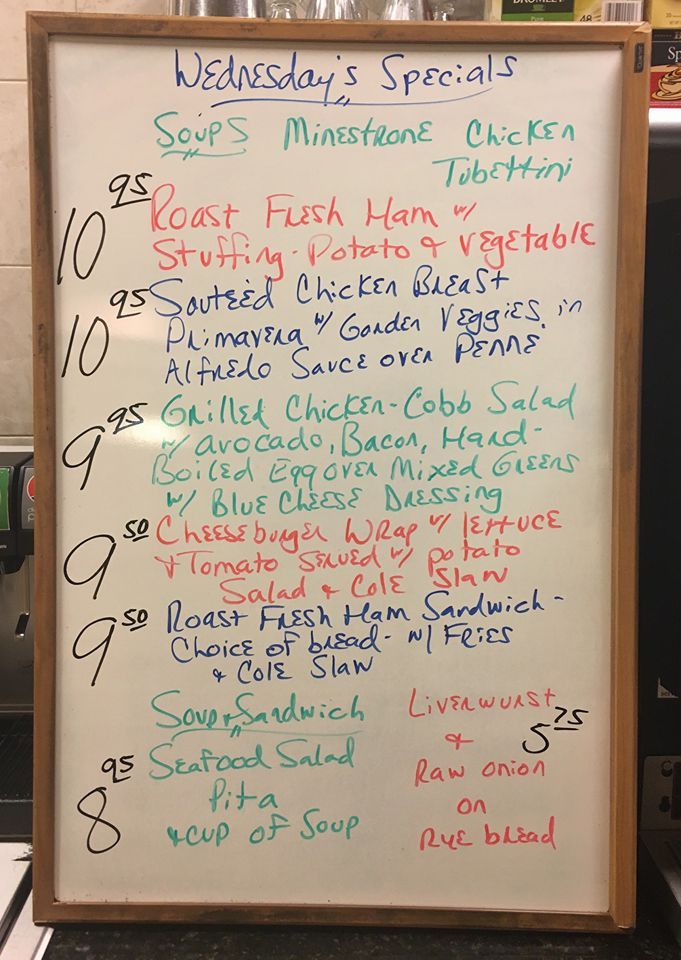 Wednesday's Specials
Soups Minestrone Chicken
Tubettini
10 95 Roast Fresh Ham w/
Stuffing-Potato & Vegetable
10 95 Souteéd Chicken Breast
Primavera w/ Garden Veggies in
Alfredo Sauce over Penne
9 95 Grilled Chicken-Cobb Salad
w/ avocado, Bacon, Hard-
Boiled Egg over Mixed Greens
w/ Blue Cheese Dressing
9 50 Cheeseburger Wrap w/ lettuce
& Tomato served w/ potato
Salad & Cole Slaw
9 50 Roast Fresh Ham Sandwich-
Choice of bread- w/ Fries
& Cole Slaw
Soup & Sandwich
8 95 Seafood Salad
Pita
& cup of Soup
Liverwurst
& 5 75
Raw onion
on
Rye bread